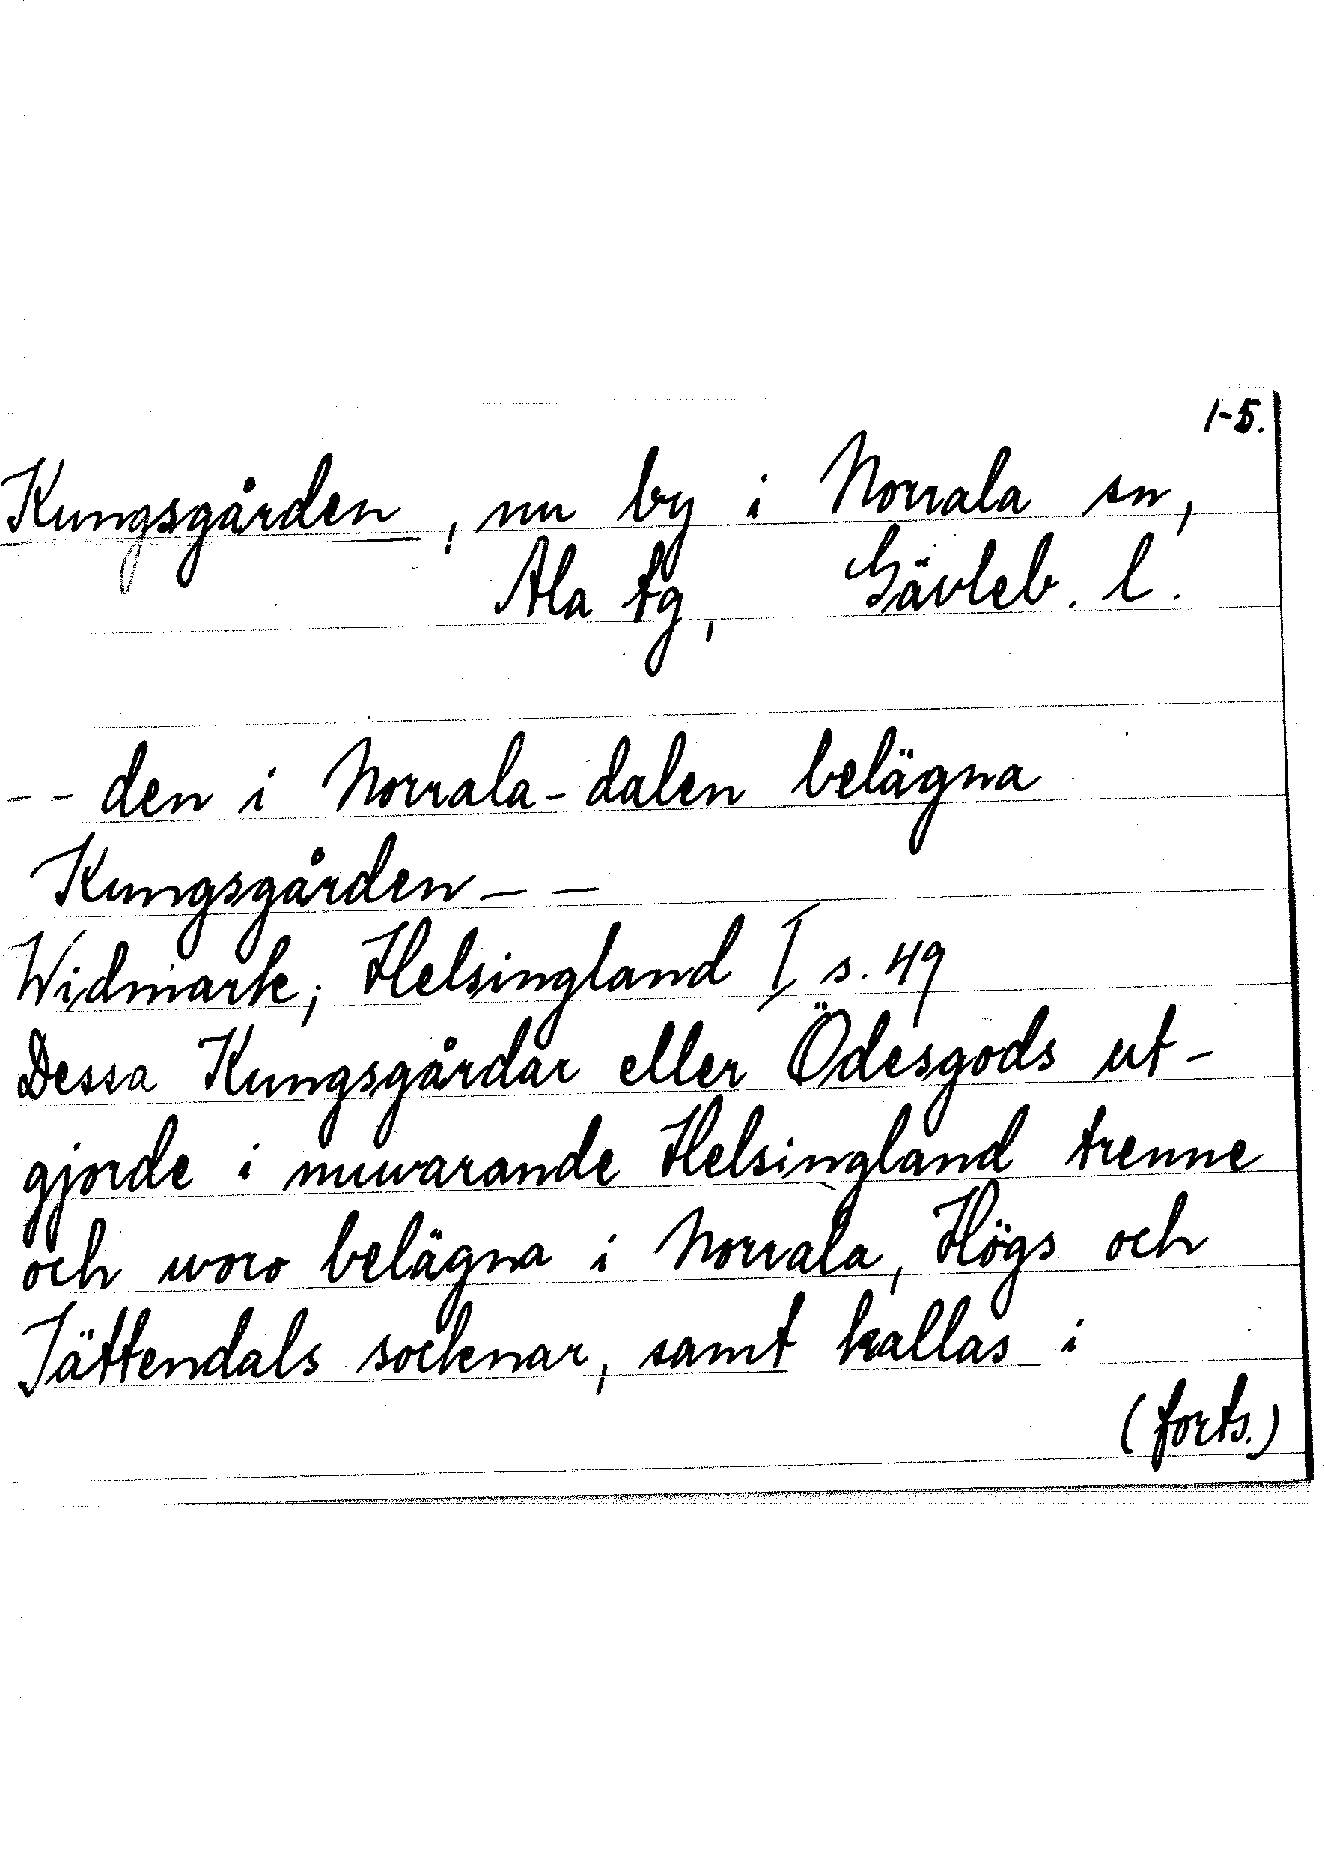 1-5.
Kungsgården, nu by i Norrala sn,
Ala tg, Gävleb. l.
-- den i Norrala-dalen belägna
Kungsgården --
Widmark; Helsingland I s. 49
Dessa Kungsgårdar eller Ödesgods ut-
gjorde i nuwarande Helsingland trenne
och woro belägna i Norrala, Högs och
Jättendals socknar, samt kallas i
(forts.)